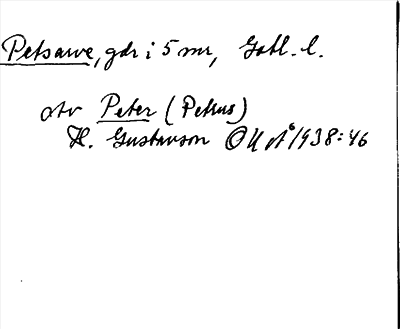 Petsarve, gdr i 5 snr, Gotl. l.
av Peter (Petrus)
H. Gustavson OUÅ 1938:46